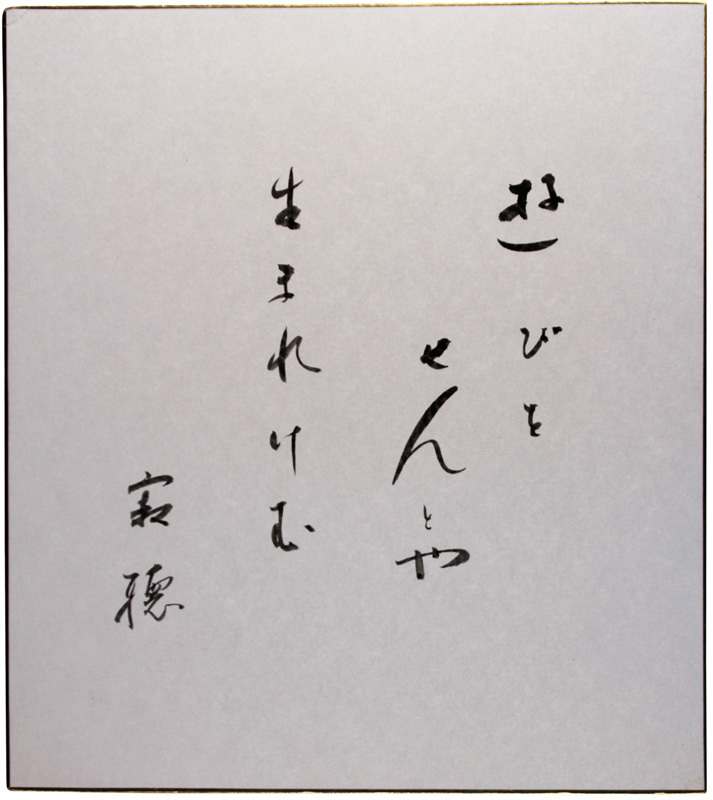 遊びを
せんとや
生まれけむ
寂聴